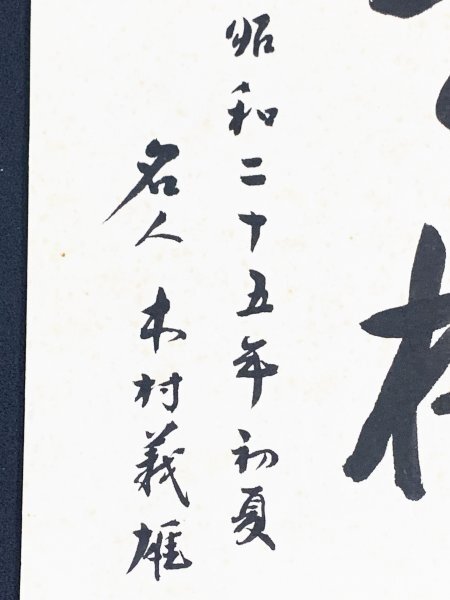 昭和二十五年初夏
名人 木村義雄